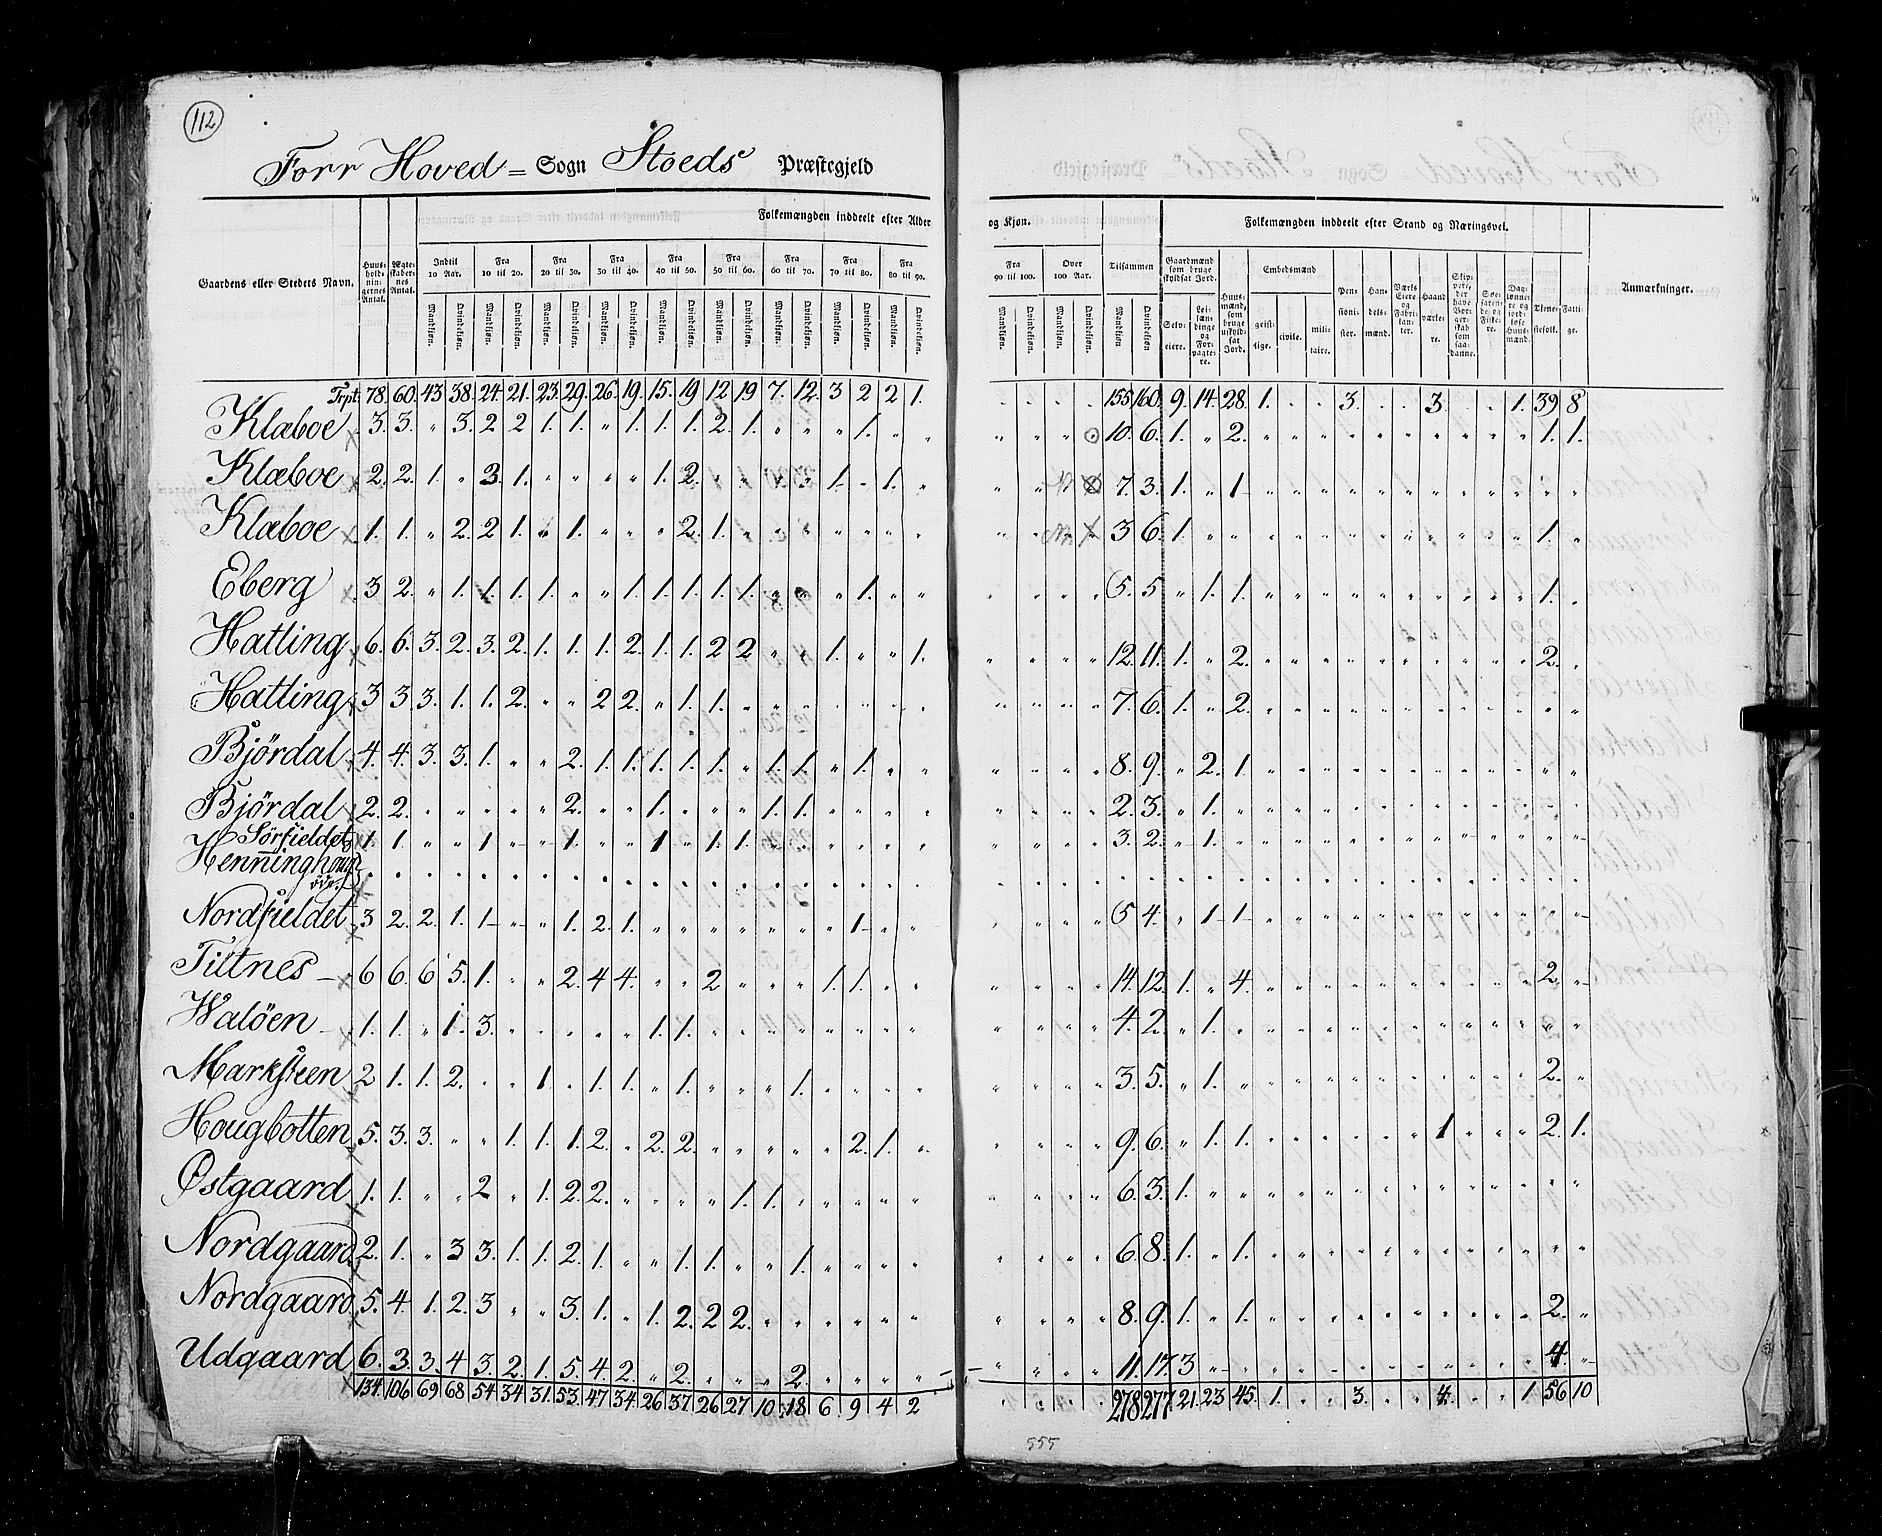 112
Forr Hoved = Sogn Stoeds Præstegjeld
Folkemængden inddeelt efter Alder og Kjøn. Folkemængden inddeelt efter Stand og Næringsvei.
Gaardens eller Stedets Navn. Huus-holdnin-gernes Antal. Ægte-skaber-nes Antal. Indtil 10 Aar. Fra 10 til 20. Fra 20 til 30. Fra 30 til 40. Fra 40 til 50. Fra 50 til 60. Fra 60 til 70. Fra 70 til 80. Fra 80 til 90. Fra 90 til 100. Over 100 Aar. Tilsammen Gaardmænd som bruge skyldsat Jord. Huus-mænd, som bruge uskyld-sat Jord. Embedsmænd Pen-sioni-ster. Han-dels-mænd. Værks Eiere og Fabri-kan-ter. Haand-værke-re. Søe-farende og Fiske-re. Tjene-stefolk. Fatti-ge. Anmærkninger.
Mandkjøn. Qvindekjøn. Selv-eiere. Lei-læn-dinge og For-pagte-re. geist-lige. civile. mili-taire.
Trpt. 78. 60. 43 38. 24. 21. 23. 29. 26. 19. 15. 19 12 19 7. 12. 3 2 2 1. 155 160. 9. 14. 28. 1. 3. 3. 1. 39 8
Klæboe 3. 3. " 3. 2 2 1. 1. " 1. 1. 1. 2. 1. 1. 10. 6. 1. " 2. 1. 1.
Klæboe 2. 2. 1. " 3 1. 1. 2. 1. 1. 7. 3. 1. " 1
Klæboe 1. 1. " 2. 2 1. " 1. 2. 1. 3 6. 1. 1.
Eberg 3 2. " 1. 1. 1. 1. " " 1. 1. 1. 1. 1. 1. 5. 5 " 1. 1. 1.
Hatling 6. 6. 3. 2. 3. 2. 1. 1. 1. 2. 1. 1. 2 2 1. 1. 12. 11. 1. " 2. 2.
Hatling 3 3 3. 1. 1. 2. " " 2 2. " 1. 1. 7. 6. 1. " 2.
Björdal 4. 4. 3 3. 1. " " 2. 1. 1. 1. 1. 1. " 1. 1. " 1. 8. 9. " 2. 1.
Björdal 2. 2. 2. 1. 1. 1. 2. 3. " 1.
Sörfieldet 1. 1. " " 1 1. 1 " 1. 1. 3. 2. 1.
Henninghoug öde.
Nordfieldet 3 2. 2. 1. 1 1. 2. 1. 1 5 4. " 1 1
Tiltnes 6 6. 6 5. 1. " " 2. 4 4. " " 2 1. 1. 14. 12. 1. " 4. 2.
Waløen 1. 1. " 1. 3. 1. 1. 4. 2. " 1.
Marksteen 2 1. 1. 2. 1. 1. 1. " 1. 1. 3. 5. " 1. 2.
Hougbotten 5. 3. 3. " " 1. 1. 1. 2. " 2. 2. 2. 1. 9. 6. " 1. 1. 1 2. 1.
Østgaard 1. 1. " " 2 " 1. 2 2. 1. 1. 6. 3. 1.
Nordgaard 2. 1. " 3 3. 1. 1. 2. 1. " " 1. 1. 1. 6. 8. 1. " 1.
Nordgaard 5. 4. 1. 2. 3 " " 3. 1. " 1. 2. 2 2. 8. 9. 1. " 1. 2.
Udgaard 6. 3. 3. 4 3. 2. 1. 5. 4. 2. " 2. 2. 11. 17. 3 4.
134. 106 69 68 54 34 31. 53. 47 34. 26 37 26 27 10 18 6 9 4 2 278 277 21. 23 45. 1. 3. 4. 1 56 10
555